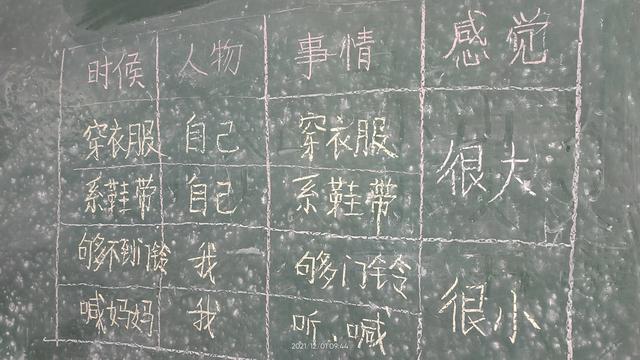 时候 人物 事情 感觉
穿衣服 自己 穿衣服 很大
系鞋带 自己 系鞋带
够不到门铃 我 够门铃 很小
喊妈妈 我 听、喊
2021/12/01 09:44